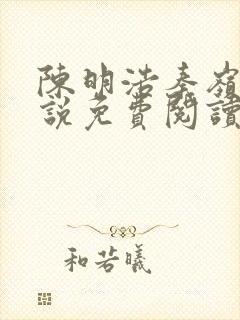 陳明浩秦嶺
說免費閱讀
和若曦